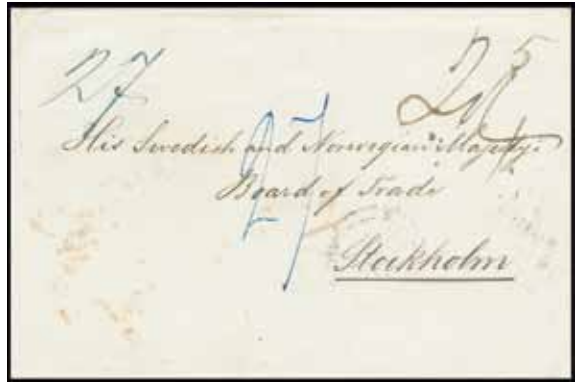 27
27
His Swedish and Norwegian Majesty's
Board of Trade
Stockholm